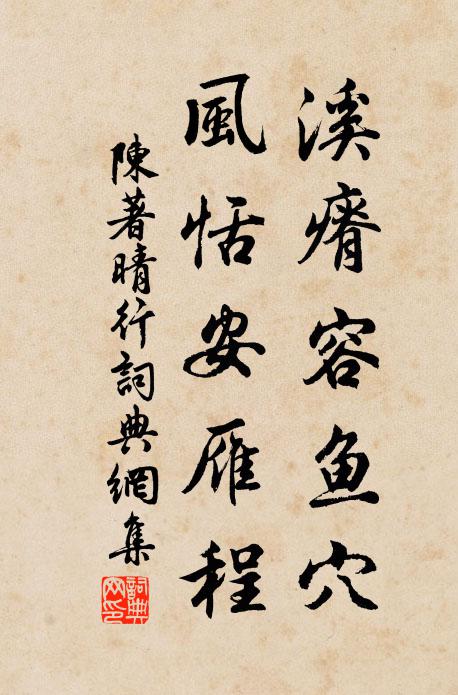 溪瘠容鱼穴
風恬安雁程
陳著晴行詞典網集
詞典网印